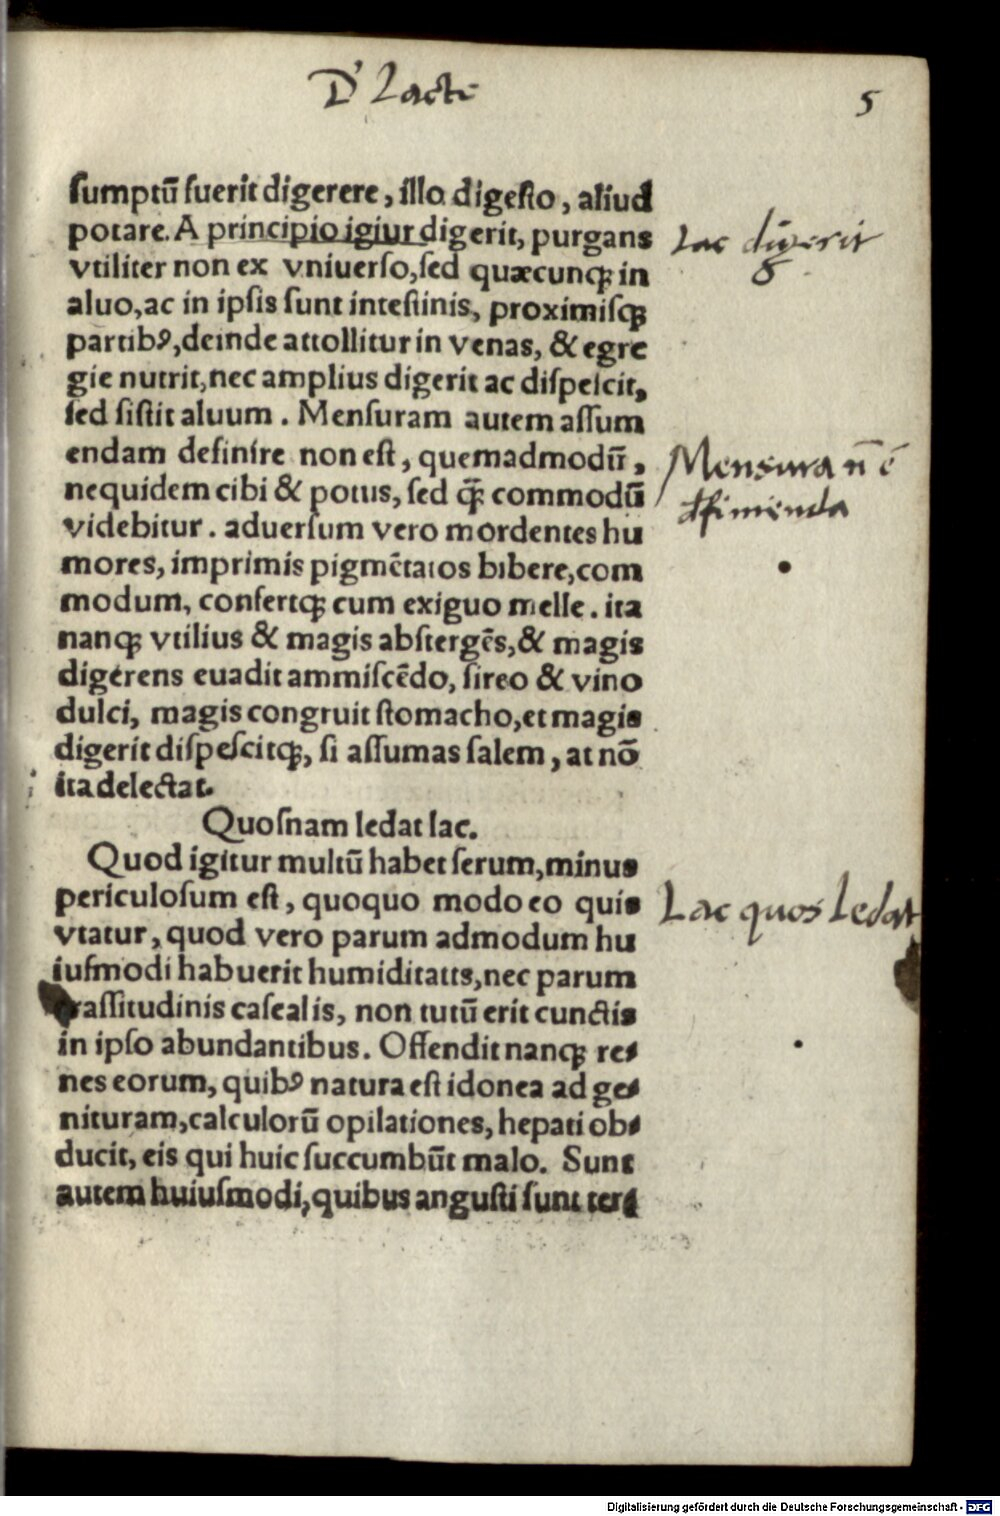 D' Lacte
5
sumptū fuerit digerere, illo digesto, aliud
potare. A principio igiur digerit, purgans
vtiliter non ex vniuerso, sed quæcunqꝫ in
aluo, ac in ipsis sunt intestinis, proximisqꝫ
partibꝰ, deinde attollitur in venas, & egre
gie nutrit, nec amplius digerit ac dispescit,
sed sistit aluum. Mensuram autem assum
endam definire non est, quemadmodū,
nequidem cibi & potus, sed q̄ȝ commodū
videbitur. aduersum vero mordentes hu
mores, imprimis pigmētatos bibere, com
modum, confertqꝫ cum exiguo melle. ita
nanqꝫ vtilius & magis abstergēs, & magis
digerens euadit ammiscēdo, sireo & vino
dulci, magis congruit stomacho, et magis
digerit dispescitqꝫ, si assumas salem, at nō
ita delectat.
Quosnam ledat lac.
Quod igitur multū habet serum, minus
periculosum est, quoquo modo eo quis
vtatur, quod vero parum admodum hu
iusmodi habuerit humiditatis, nec parum
crassitudinis casealis, non tutū erit cunctis
in ipso abundantibus. Offendit nanqꝫ re-
nes eorum, quibꝰ natura est idonea ad ge-
nituram, calculorū opilationes, hepati ob-
ducit, eis qui huic succumbūt malo. Sunt
autem huiusmodi, quibus angusti sunt ter-
Lac digerit
Mensura n̄ ē
diffinienda
Lac quos Ledat
Digitalisierung gefördert durch die Deutsche Forschungsgemeinschaft - DFG